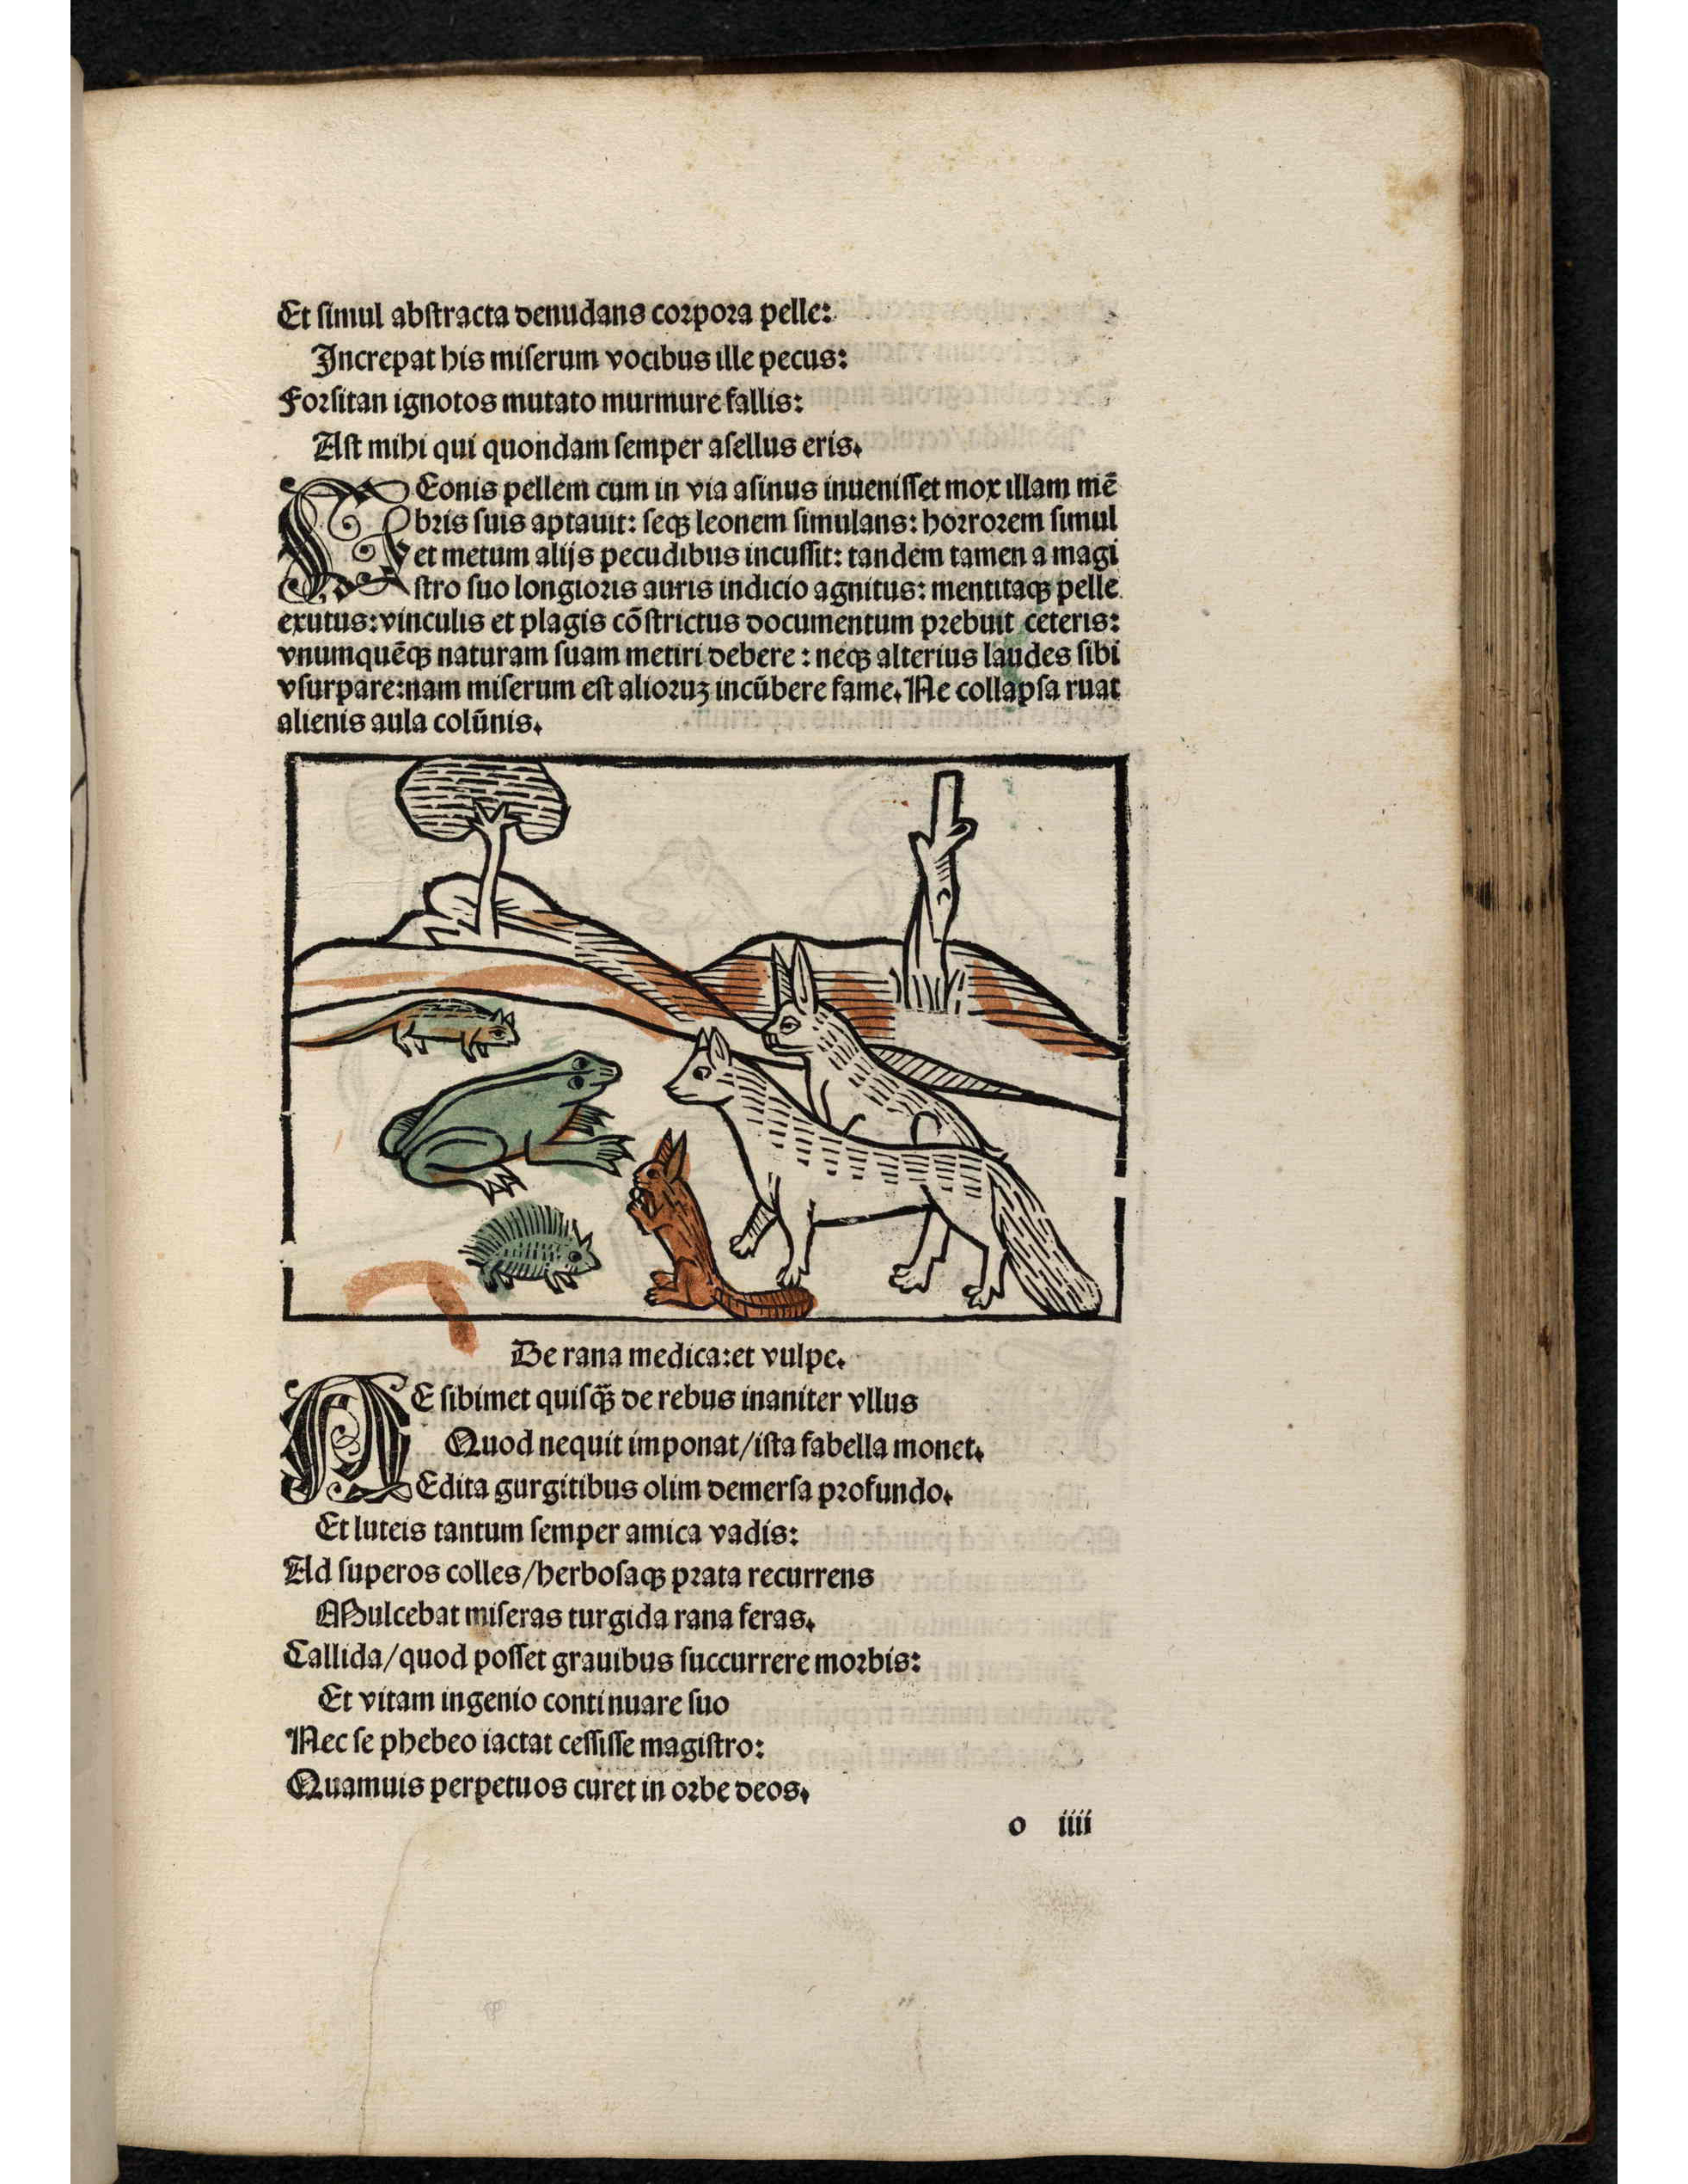 Et ſimul abſtracta denudans corpora pelle:
Increpat his miſerum vocibus ille pecus:
Forſitan ignotos mutato murmure fallis:
Aſt mihi qui quondam ſemper aſellus eris.
LEonis pellem cum in via aſinus inueniſſet mox illam mē
bris ſuis aptauit: ſeqꝫ leonem ſimulans: horrorem ſimul
et metum alijs pecudibus incuſſit: tandem tamen a magi
ſtro ſuo longioris auris indicio agnitus: mentitaqꝫ pelle
exutus: vinculis et plagis cōſtrictus documentum prebuit ceteris:
vnumquēqꝫ naturam ſuam metiri debere: neqꝫ alterius laudes ſibi
vſurpare: nam miſerum eſt alioruꝫ incūbere fame. Ne collapſa ruat
alienis aula colūnis.
De rana medica: et vulpe.
NE ſibimet quiſq̄ꝫ de rebus inaniter vllus
Quod nequit imponat/iſta fabella monet.
Edita gurgitibus olim demerſa profundo.
Et luteis tantum ſemper amica vadis:
Ad ſuperos colles/herboſaqꝫ prata recurrens
Mulcebat miſeras turgida rana feras.
Callida/quod poſſet grauibus ſuccurrere morbis:
Et vitam ingenio continuare ſuo
Nec ſe phebeo iactat ceſſiſſe magiſtro:
Quamuis perpetuos curet in orbe deos.
o iiii